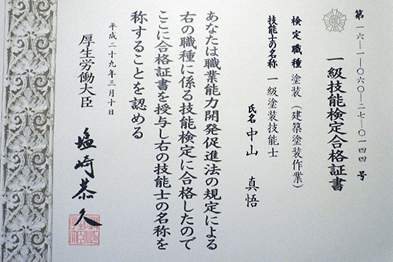 第一六-一-〇六〇-二七-〇一四四号
一級技能検定合格証書
検定職種 塗装(建築塗装作業)
技能士の名称 一級塗装技能士
氏名 中山 真悟
あなたは職業能力開発促進法の規定による
右の職種に係る技能検定に合格したので
ここに合格証書を授与し右の技能士の名称を
称することを認める
平成二十九年三月十日
厚生労働大臣 塩崎恭久